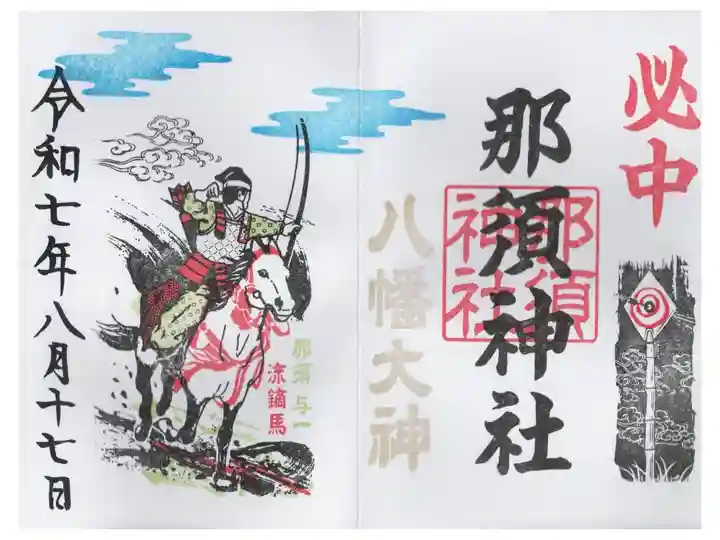 必中
那須神社
那須
神社
八幡大神
那須与一
流鏑馬
令和七年八月十七日